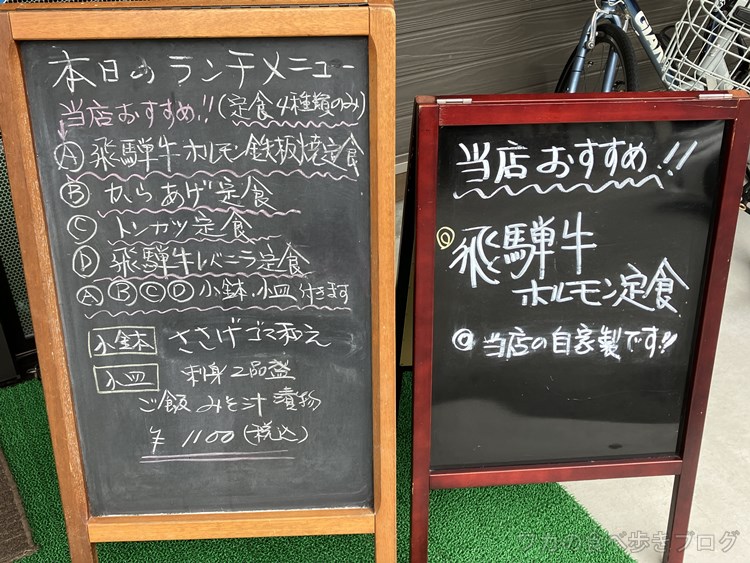 本日のランチメニュー
当店おすすめ!!(定食4種類のみ)
Ⓐ 飛騨牛ホルモン鉄板焼定食
Ⓑ からあげ定食
Ⓒ トンカツ定食
Ⓓ 飛騨牛レバニラ定食
ⒶⒷⒸⒹ 小鉢.小皿 付きます
小鉢 ささげゴマ和え
小皿 刺身2品盛
ご飯 みそ汁 漬物
¥1100(税込)
当店おすすめ!!
◎飛騨牛
ホルモン定食
◎当店の自家製です!!
GIANT
ブログ